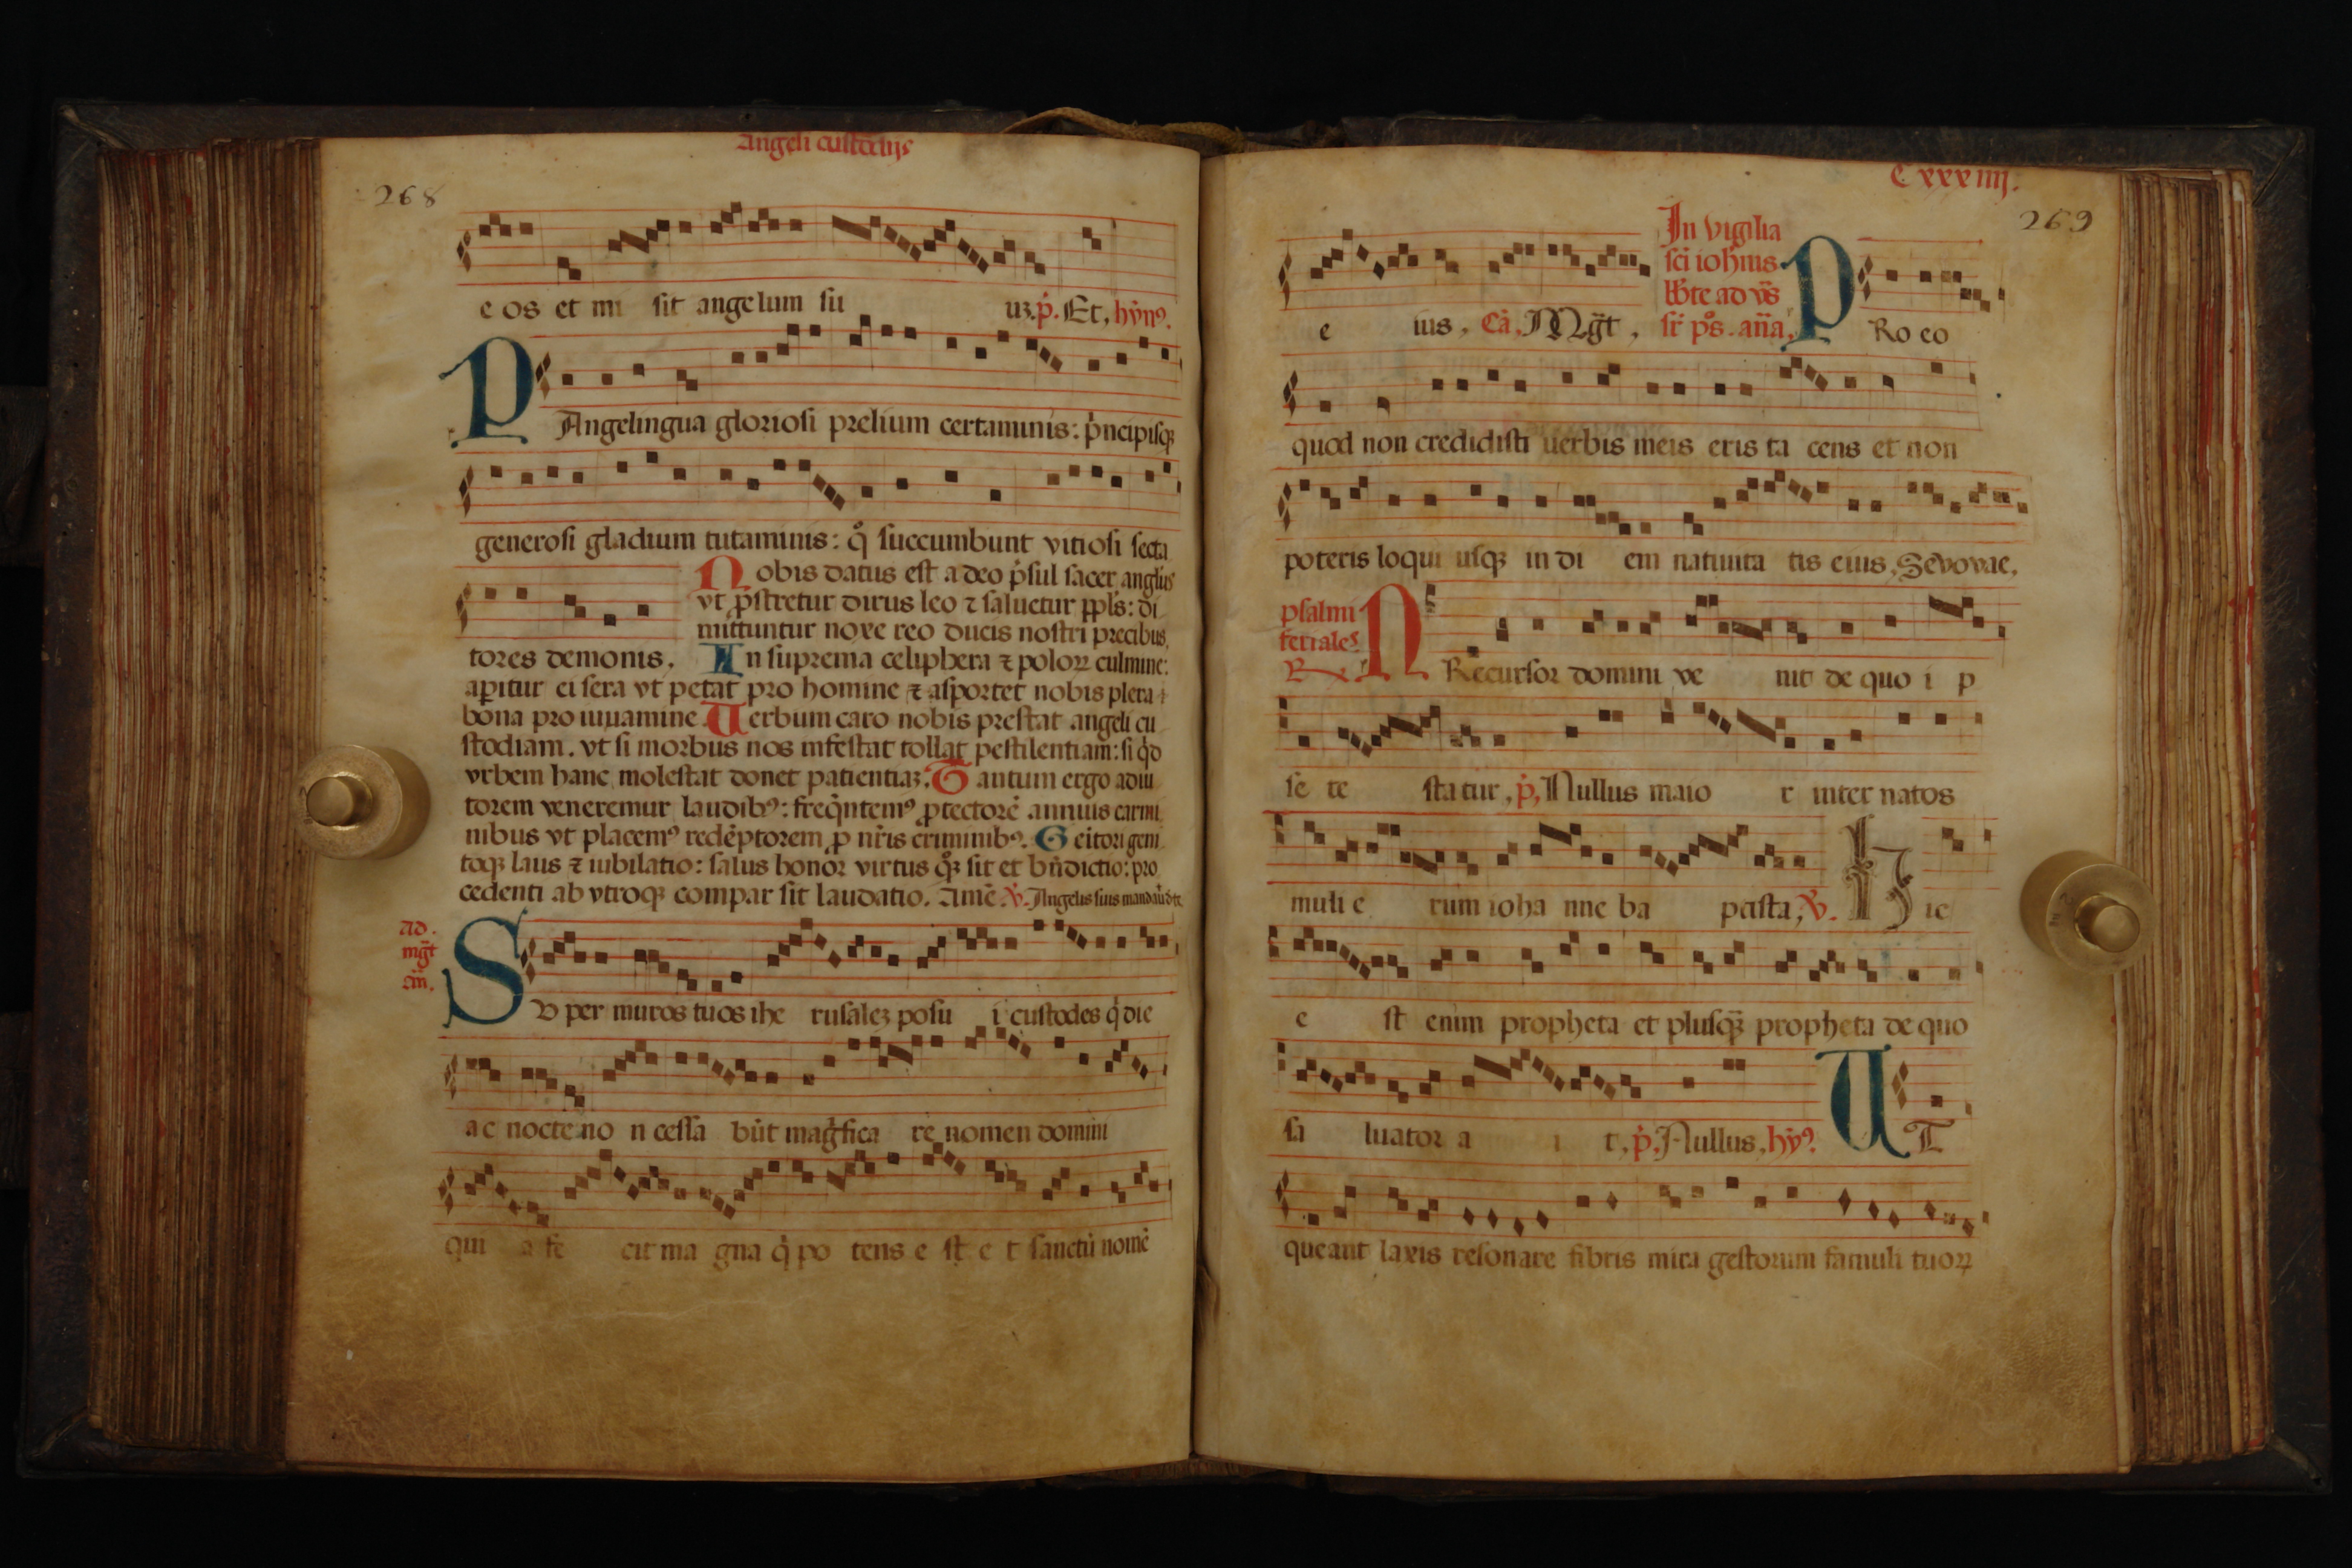 Angeli custodijs
268
e os et mi sit angelum su uꝫ. p̓. Et, hỹn⁹.
PAngelingua gloriosi prelium certaminis: p̓ncipisqꝫ
generosi gladium tutaminis: q̊ succumbunt vitiosi secta
tores demonis.
Nobis datus est a deo p̓sul sacer angl̓us
vt ꝓstretur dirus leo ⁊ saluetur ppl̓s: di
mittuntur noxe reo ducis nostri precibus.
In suprema celiphera ⁊ poloꝝ culmine:
apitur ei sera vt petat pro homine ⁊ asportet nobis plera
bona pro iuuamine. Uerbum caro nobis prestat angeli cu
stodiam. vt si morbus nos infestat tollat pestilentiam: si q̓d
vrbem hanc molestat donet patientiaꝫ. Tantum ergo adiu
torem veneremur laudib⁹: freq̃ntem⁹ ꝓtectorẽ annuis carmi
nibus vt placem⁹ redẽptorem ꝓ nr̃is criminib⁹. Geitori geni
toqꝫ laus ⁊ iubilatio: salus honor virtus q̊qꝫ sit et bñdictio: pro
cedenti ab vtroqꝫ compar sit laudatio. Amẽ. ℣. Angelis suis
ad.
mg̃t
añ.
SVper muros tuos ihe rusaleꝫ posu i custodes q̓ die
ac nocte no n cessa bũt mag̓fica re nomen domini
qui a fe cit ma gna q̓ po tens e st e t sanctũ nomẽ
Cxxxiiij.
269
e ius, Ca̓. Mg̃t,
In vigilia
sc̃i ioh̃nis
ste ad vs̃
sr̃ p̊s. aña.
PRo eo
quod non credidisti uerbis meis eris ta cens et non
poteris loqui usqꝫ in di em natiuita tis eius, Sevovae.
psalmi
feriales
℞
PRecursor domini ve nit de quo i p
se te statur, p̓, Nullus maio r inter natos
muli e rum ioha nne ba ptista, ℣. Hic
e st enim propheta et plusq̃ propheta de quo
sa luator a i t, p̓, Nullus, hỹ⁹. UT
queant laxis resonare fibris mira gestorum famuli tuoꝝ